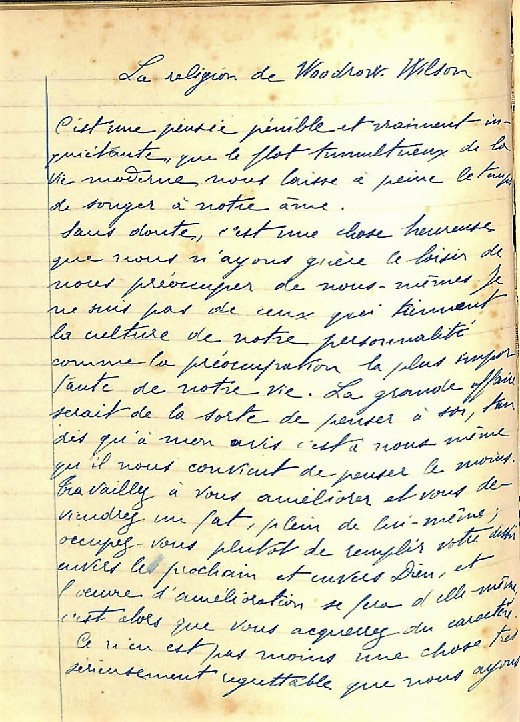 La religion de Woodrow Wilson
C'est une pensée pénible et vraiment in-
quiétante, que le flot tumultueux de la
vie moderne nous laisse à peine le temps
de songer à notre âme.
Sans doute, c'est une chose heureuse
que nous n'ayons guère le loisir de
nous préoccuper de nous-mêmes. Je
ne suis pas de ceux qui tiennent
la culture de notre personnalité
comme la préoccupation la plus impor-
tante de notre vie. La grande affaire
serait de la sorte de penser à soi, tan
dis qu'à mon avis c'est à nous même
qu'il nous convient de penser le moins.
Travaillez à vous améliorer et vous de-
viendrez un fat, plein de lui-même;
occupez-vous plutôt de remplir votre devoir
envers le prochain et envers Dieu, et
l'œuvre d'amélioration se fera d'elle-même,
c'est alors que vous acquerrez du caractère.
Ce n'en est pas moins une chose très
sérieusement regrettable que nous ayons